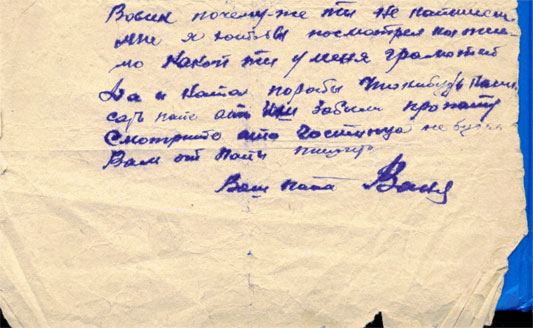 Вовик почему же ти не напишеш
мне я хотябы посмотрел на пис-
мо какой ти у меня грамотей
Да и Ката порабы чтонибудь напи-
сать папе али забыли про папу
Смотрите а то гостинца не будет
Вам от папы пишите
Ваш папа Ваня